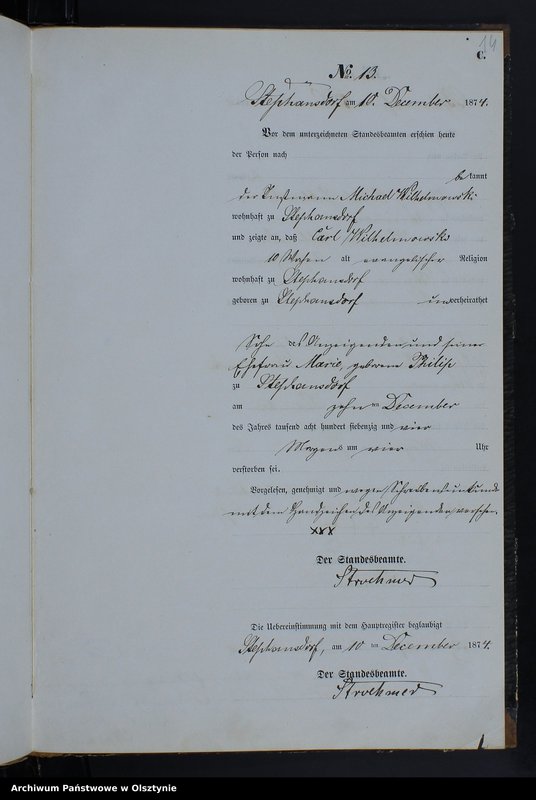 14
C.
No. 13.
Stephansdorf am 10. December 1874.
Vor dem unterzeichneten Standesbeamten erschien heute
der Person nach
bekannt
der Instmann Michael Wilhelmowski
wohnhaft zu Stephansdorf
und zeigte an, daß Carl Wilhelmowski
10 Wochen alt evangelischer Religion
wohnhaft zu Stephansdorf
geboren zu Stephansdorf unverheirathet
Sohn des Anzeigenden und seiner
Ehefrau Marie, geborene Philip
zu Stephansdorf
am zehnten December
des Jahres tausend acht hundert siebenzig und vier
Morgens um vier Uhr
verstorben sei.
Vorgelesen, genehmigt und wegen Schreibensunkunde
mit dem Handzeichen des Anzeigenden versehen.
XXX
Der Standesbeamte.
Die Uebereinstimmung mit dem Hauptregister beglaubigt
Stephansdorf, am 10ten December 1874.
Der Standesbeamte.
Archiwum Państwowe w Olsztynie